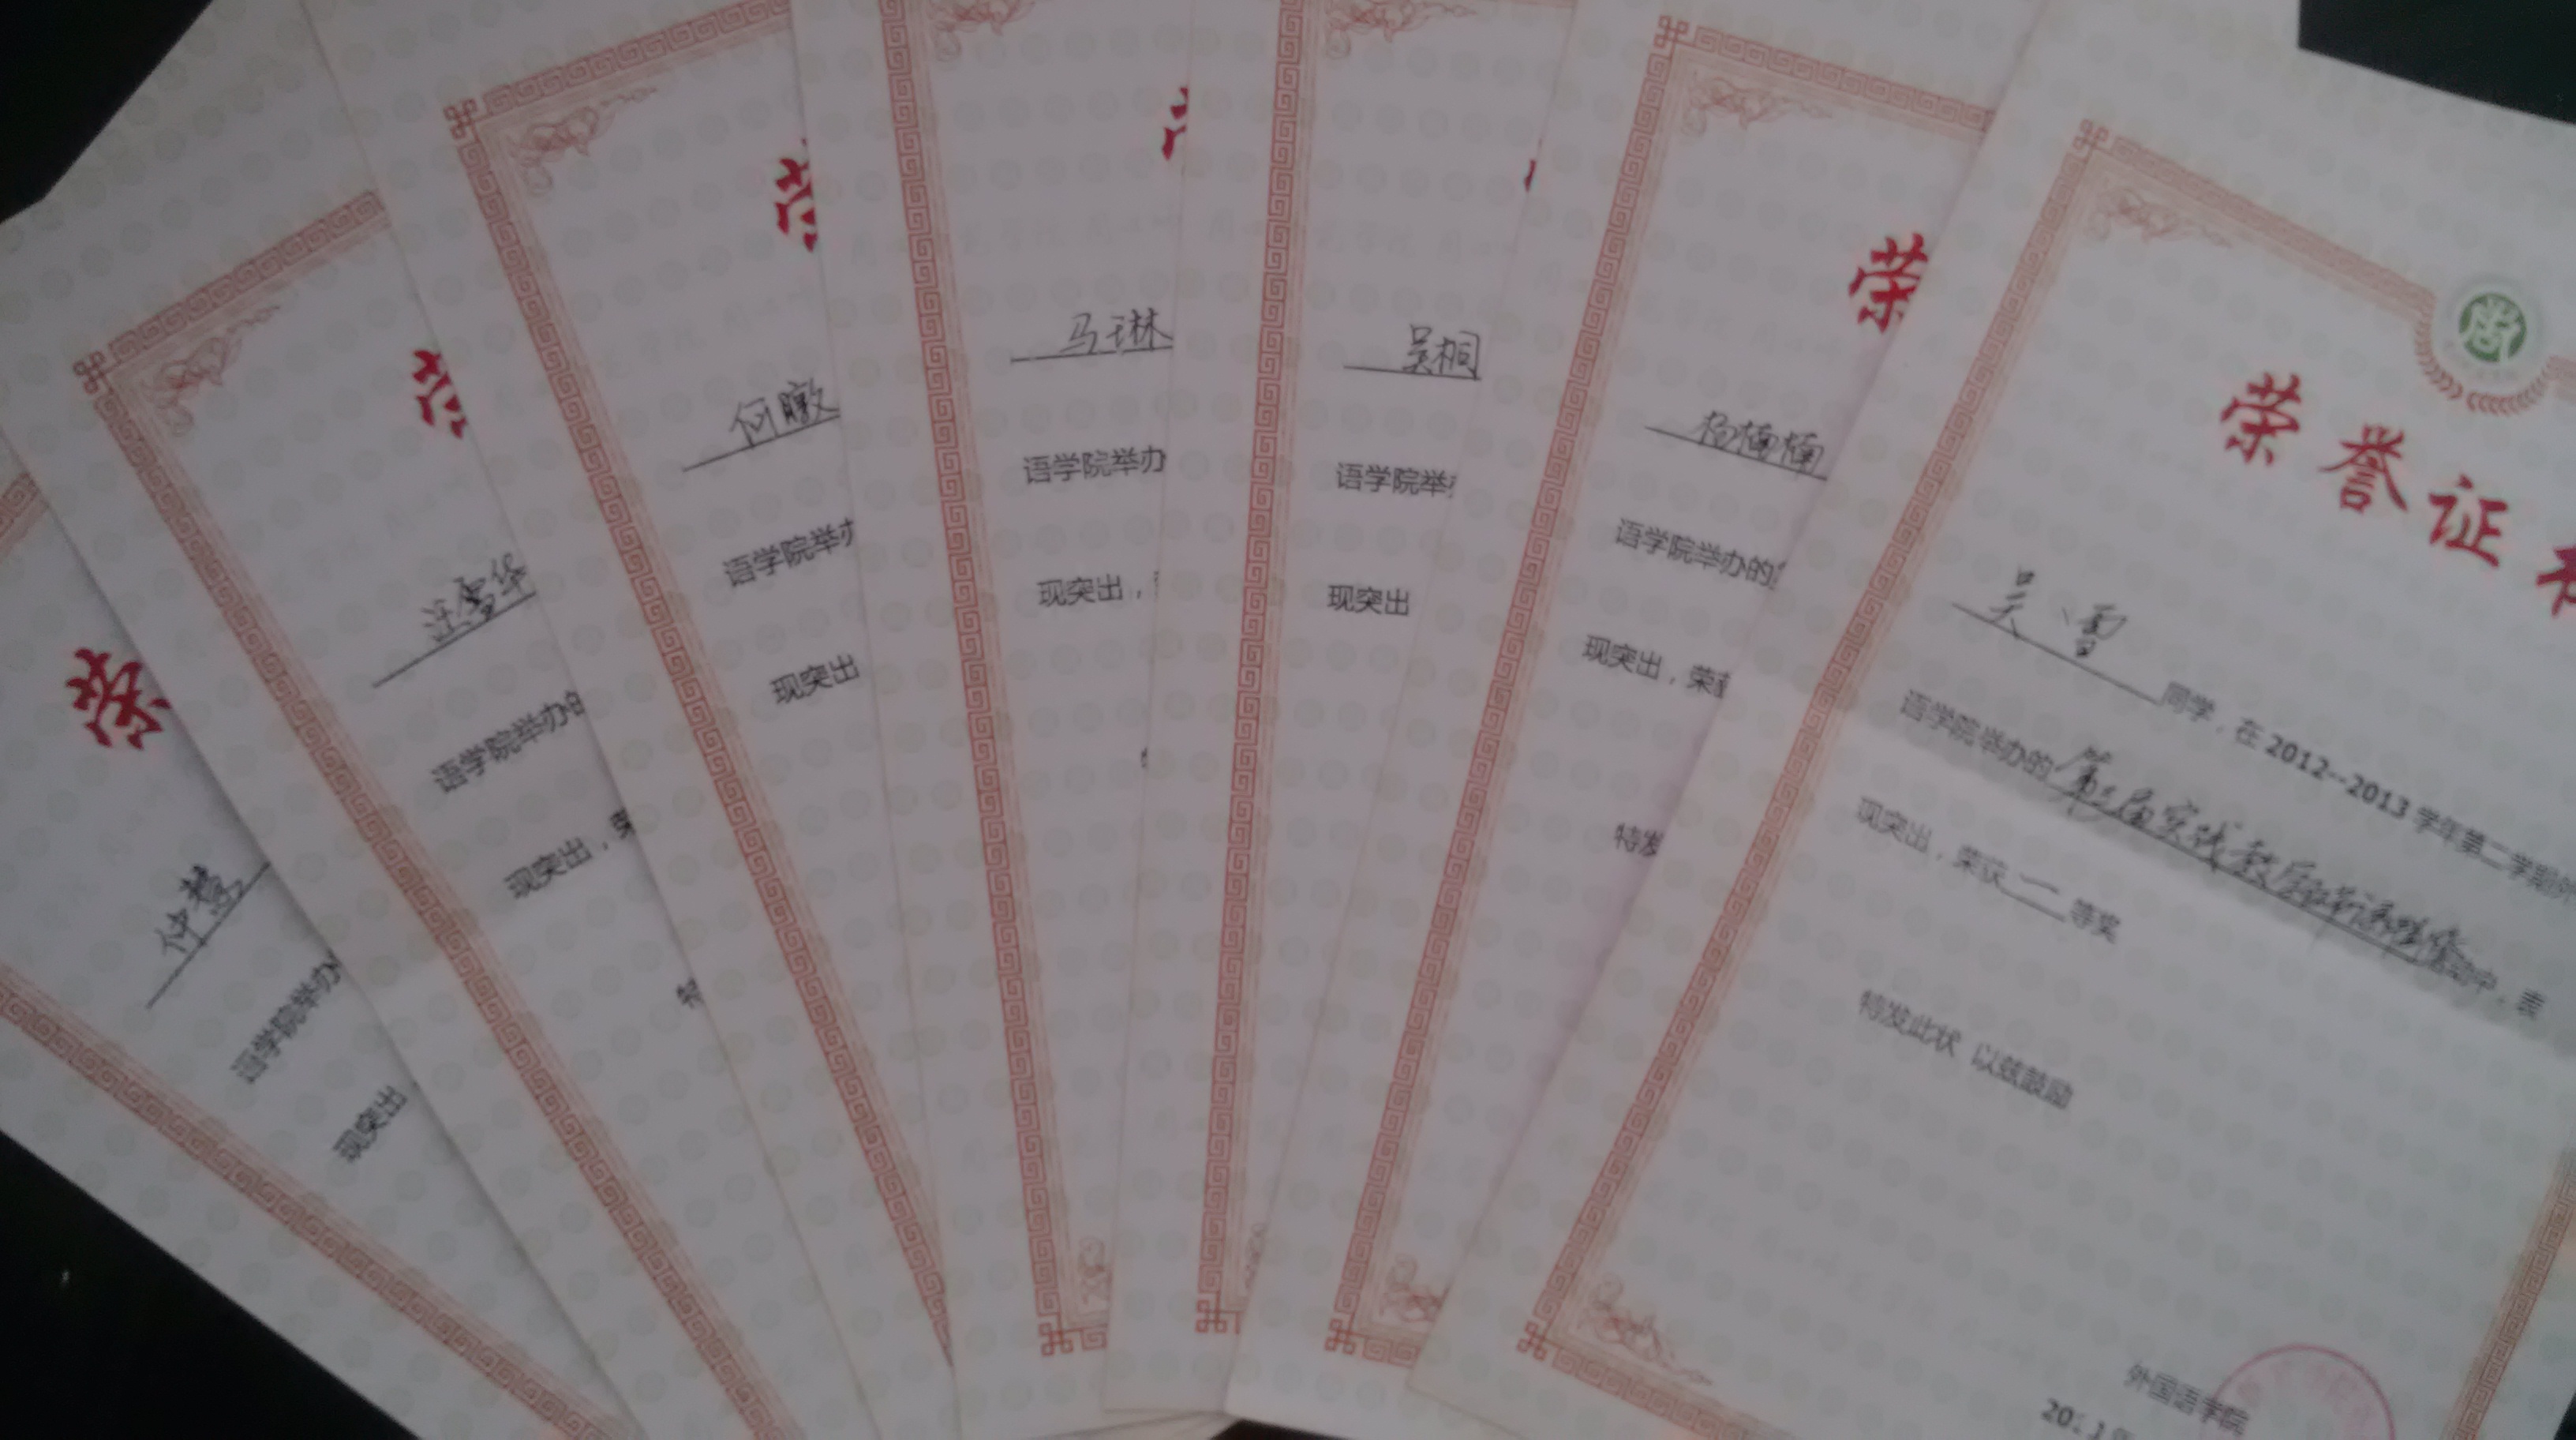 荣
仲
语学院举办
现突出
荣
汪雪华
语学院举办的
现突出，荣
特
荣
何暾
语学院举办
现突出
马琳
语学院举办
现突出，
吴桐
语学院举
现突出
荣
杨楠楠
语学院举办的
现突出，荣获
特发
荣誉证
吴雪
同学，在2012--2013学年第二学期外
语学院举办的 活动中，表
现突出，荣获一等奖
特发此状 以兹鼓励
外国语学院